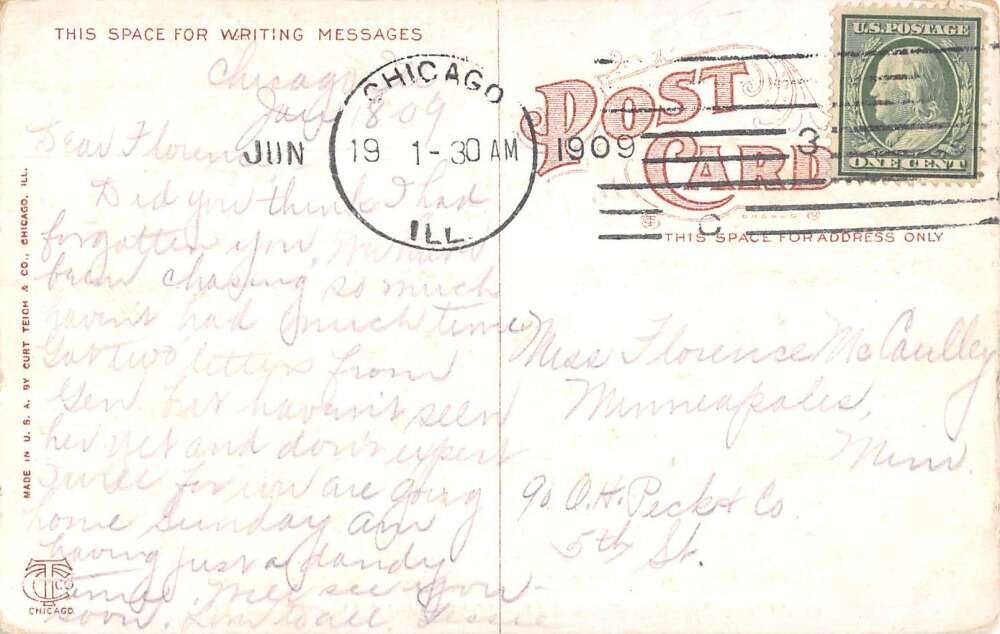 THIS SPACE FOR WRITING MESSAGES
Chicago
18 09
Dear Florence
Did you think I had
forgotten you,
been chasing so much
havent had much time
Got two letters from
Gen. but haven't seen
her yet and don't expect
for we are going
home Sunday am
having just a dandy
time. Will see you
soon. Love to all
MADE IN U. S. A. BY CURT TEICH & CO., CHICAGO, ILL.
CTCO
CHICAGO
CHICAGO
JUN 19 1-30 AM 1909
ILL.
3
C
POST
CARD
U.S. POSTAGE
ONE CENT
THIS SPACE FOR ADDRESS ONLY
Miss Florence McCaulley
Minneapolis,
Minn.
℅ O.H. Peck & Co
5th St.